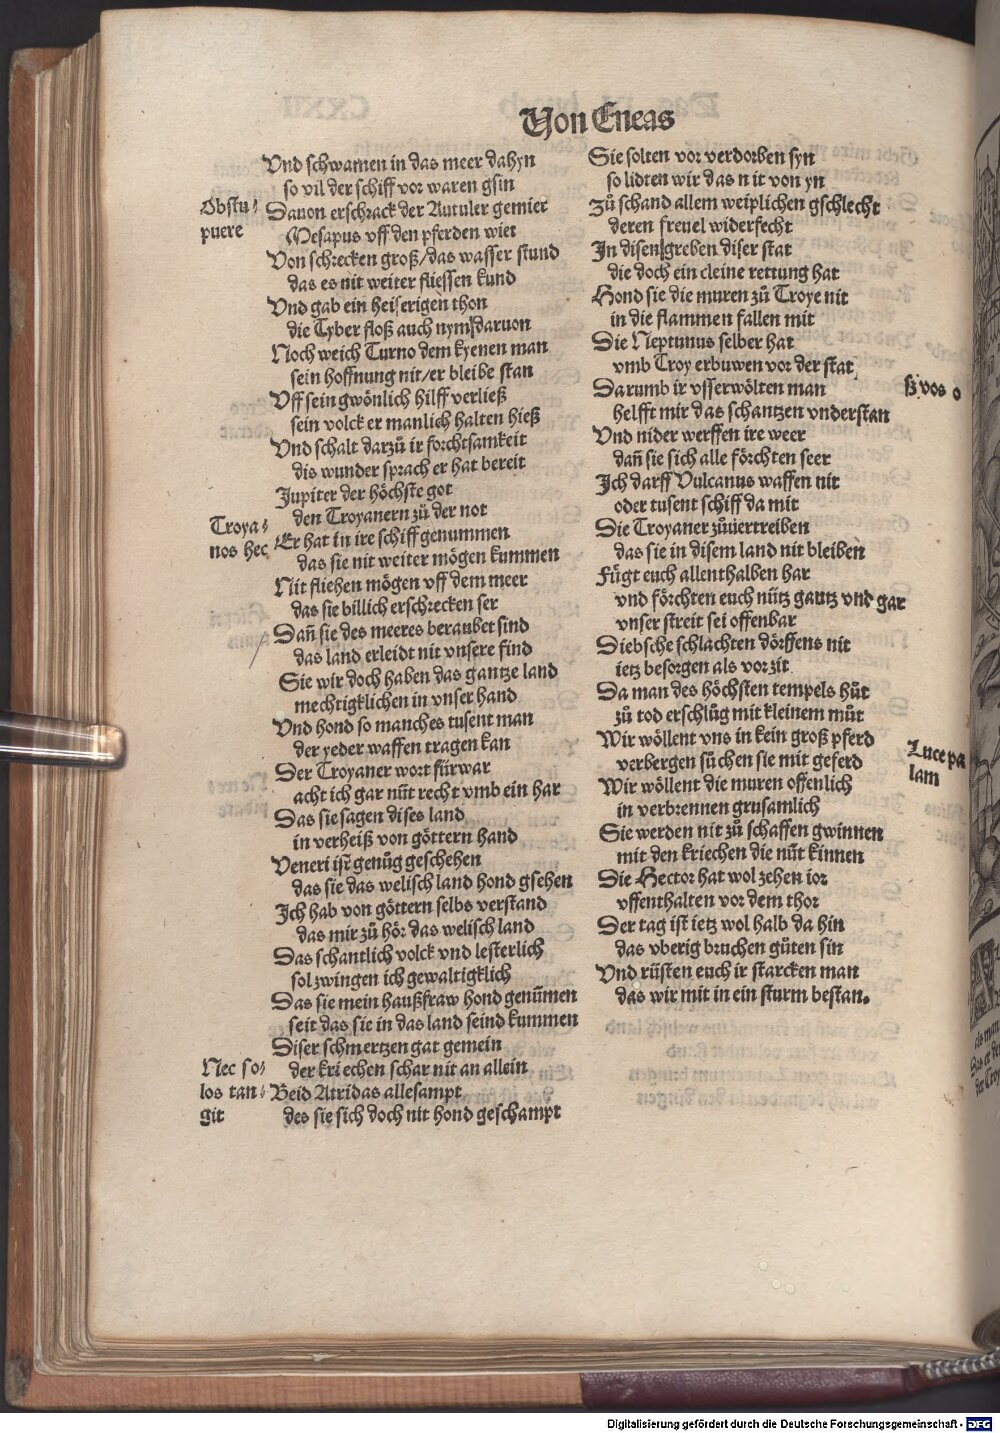 Von Eneas
Vnd schwamen in das meer dahyn
so vil der schiff vor waren gsin
Obstu⸗
puere
Dauon erschrack der Rutuler gemiet
Mesapus vff den pferden wiet
Von schrecken groß/das wasser stund
das es nit weiter fliessen kund
Vnd gab ein heiserigen thon
die Tyber floß auch nym daruon
Noch weich Turno dem kyenen man
sein hoffnung nit/er bleibe stan
Vff sein gwönlich hilff verließ
sein volck er manlich halten hieß
Vnd schalt darzů ir forchtsamkeit
dis wunder sprach er hat bereit
Jupiter der höchste got
den Troyanern zů der not
Troya⸗
nos hec
Er hat in ire schiff genummen
das sie nit weiter mögen kummen
Nit fliehen mögen vff dem meer
das sie billich erschrecken ser
Dañ sie des meeres beraubet sind
das land erleidt nit vnsere find
Sie wir doch haben das gantze land
mechtigklichen in vnser hand
Vnd hond so manches tusent man
der yeder waffen tragen kan
Der Troyaner wort fürwar
acht ich gar nüt recht vmb ein har
Das sie sagen dises land
in verheiß von göttern hand
Veneri ist genůg geschehen
das sie das welisch land hond gsehen
Ich hab von göttern selbs verstand
das mir zů hör das welisch land
Das schantlich volck vnd lesterlich
sol zwingen ich gewaltigklich
Das sie mein haußfraw hond genūmen
seit das sie in das land seind kummen
Diser schmertzen gat gemein
Nec so⸗
los tan⸗
git
der kriechen schar nit an allein
Beid Atridas allesampt
des sie sich doch nit hond geschampt
Sie solten vor verdorben syn
so lidten wir das nit von yn
Zů schand allem weiplichen gschlecht
deren freuel widerfecht
In disen greben diser stat
die doch ein cleine rettung hat
Hond sie die muren zů Troye nit
in die flammen fallen mit
Die Neptunus selber hat
vmb Troy erbuwen vor der stat
Darumb ir vsserwölten man
ß vos o
helfft mir das schantzen vnderstan
Vnd nider werffen ire weer
dañ sie sich alle förchten seer
Ich darff Vulcanus waffen nit
oder tusent schiff da mit
Die Troyaner zůuertreiben
das sie in disem land nit bleiben
Fügt euch allenthalben har
vnd förchten euch nütz gantz vnd gar
vnser streit sei offenbar
Diebsche schlachten dörffens nit
ietz besorgen als vor zit
Da man des höchsten tempels hůt
zů tod erschlůg mit kleinem můt
Wir wöllent vns in kein groß pferd
Luce pa
lam
verbergen sůchen sie mit geferd
Wir wöllent die muren offenlich
in verbrennen grusamlich
Sie werden nit zů schaffen gwinnen
mit den kriechen die nüt kinnen
Die Hector hat wol zehen ior
vffenthalten vor dem thor
Der tag ist ietz wol halb da hin
das vberig bruchen gůten sin
Vnd rüsten euch ir starcken man
das wir mit in ein sturm bestan.
Digitalisierung gefördert durch die Deutsche Forschungsgemeinschaft - DFG